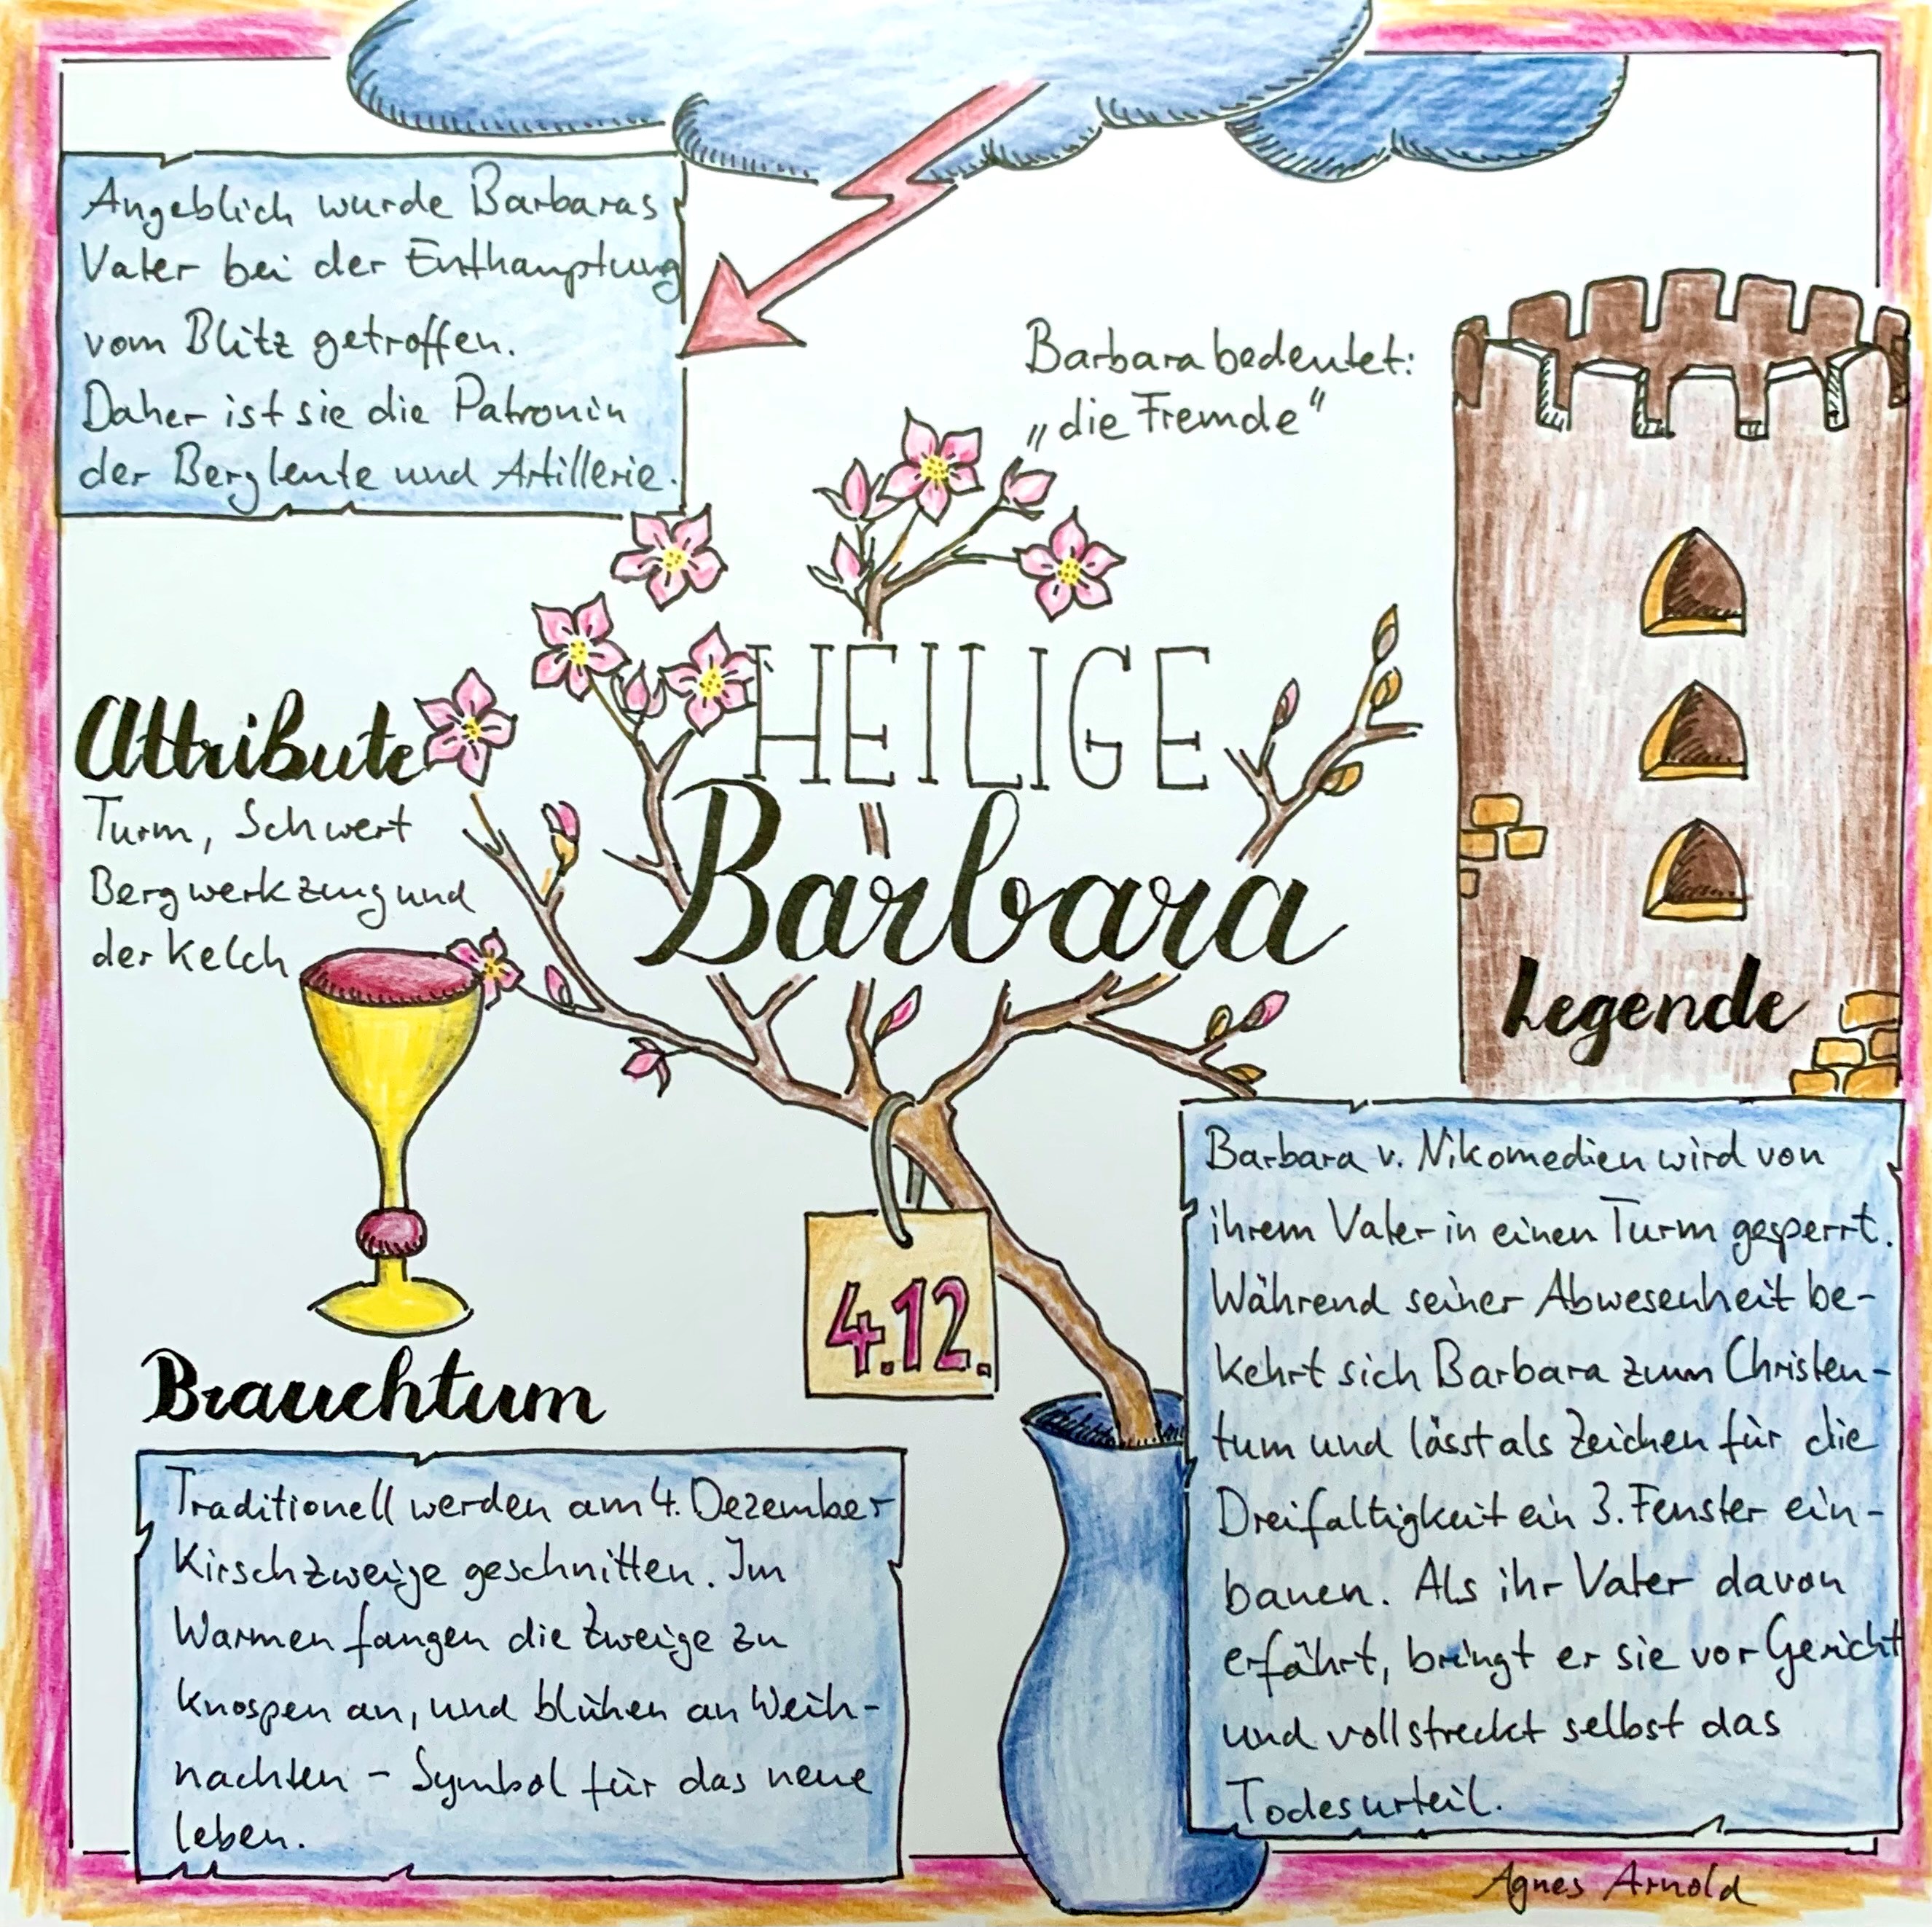 Angeblich wurde Barbaras
Vater bei der Enthauptung
vom Blitz getroffen.
Daher ist sie die Patronin
der Bergleute und Artillerie.
Barbara bedeutet:
„die Fremde“
HEILIGE
Barbara
Attribute
Turm, Schwert
Bergwerkzeug und
der Kelch
4.12.
Brauchtum
Traditionell werden am 4. Dezember
Kirschzweige geschnitten. Im
Warmen fangen die Zweige zu
knospen an, und blühen an Weih-
nachten – Symbol für das neue
Leben.
Legende
Barbara v. Nikomedien wird von
ihrem Vater in einen Turm gesperrt.
Während seiner Abwesenheit be-
kehrt sich Barbara zum Christen-
tum und lässt als Zeichen für die
Dreifaltigkeit ein 3. Fenster ein-
bauen. Als ihr Vater davon
erfährt, bringt er sie vor Gericht
und vollstreckt selbst das
Todesurteil.
Agnes Arnold